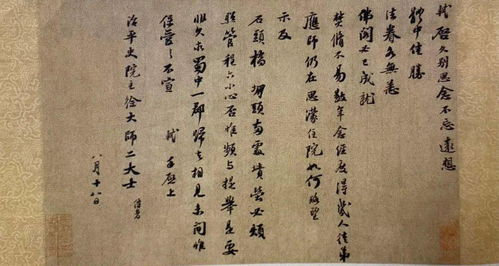 軾啓久別思念不忘遠想
體中佳勝
法眷各無恙
佛閣必已成就
焚修不易數年念經度得幾人徒弟
應師仍在思濛住院如何略望
示及
石頭橋堋頭兩處墳塋必煩
照管程六小心否惟頻與提舉是要
非久求蜀中一郡歸去相見未間惟
保愛之不宣 軾手啓上
治平史院主徐大師二大士 侍者
八月十八日